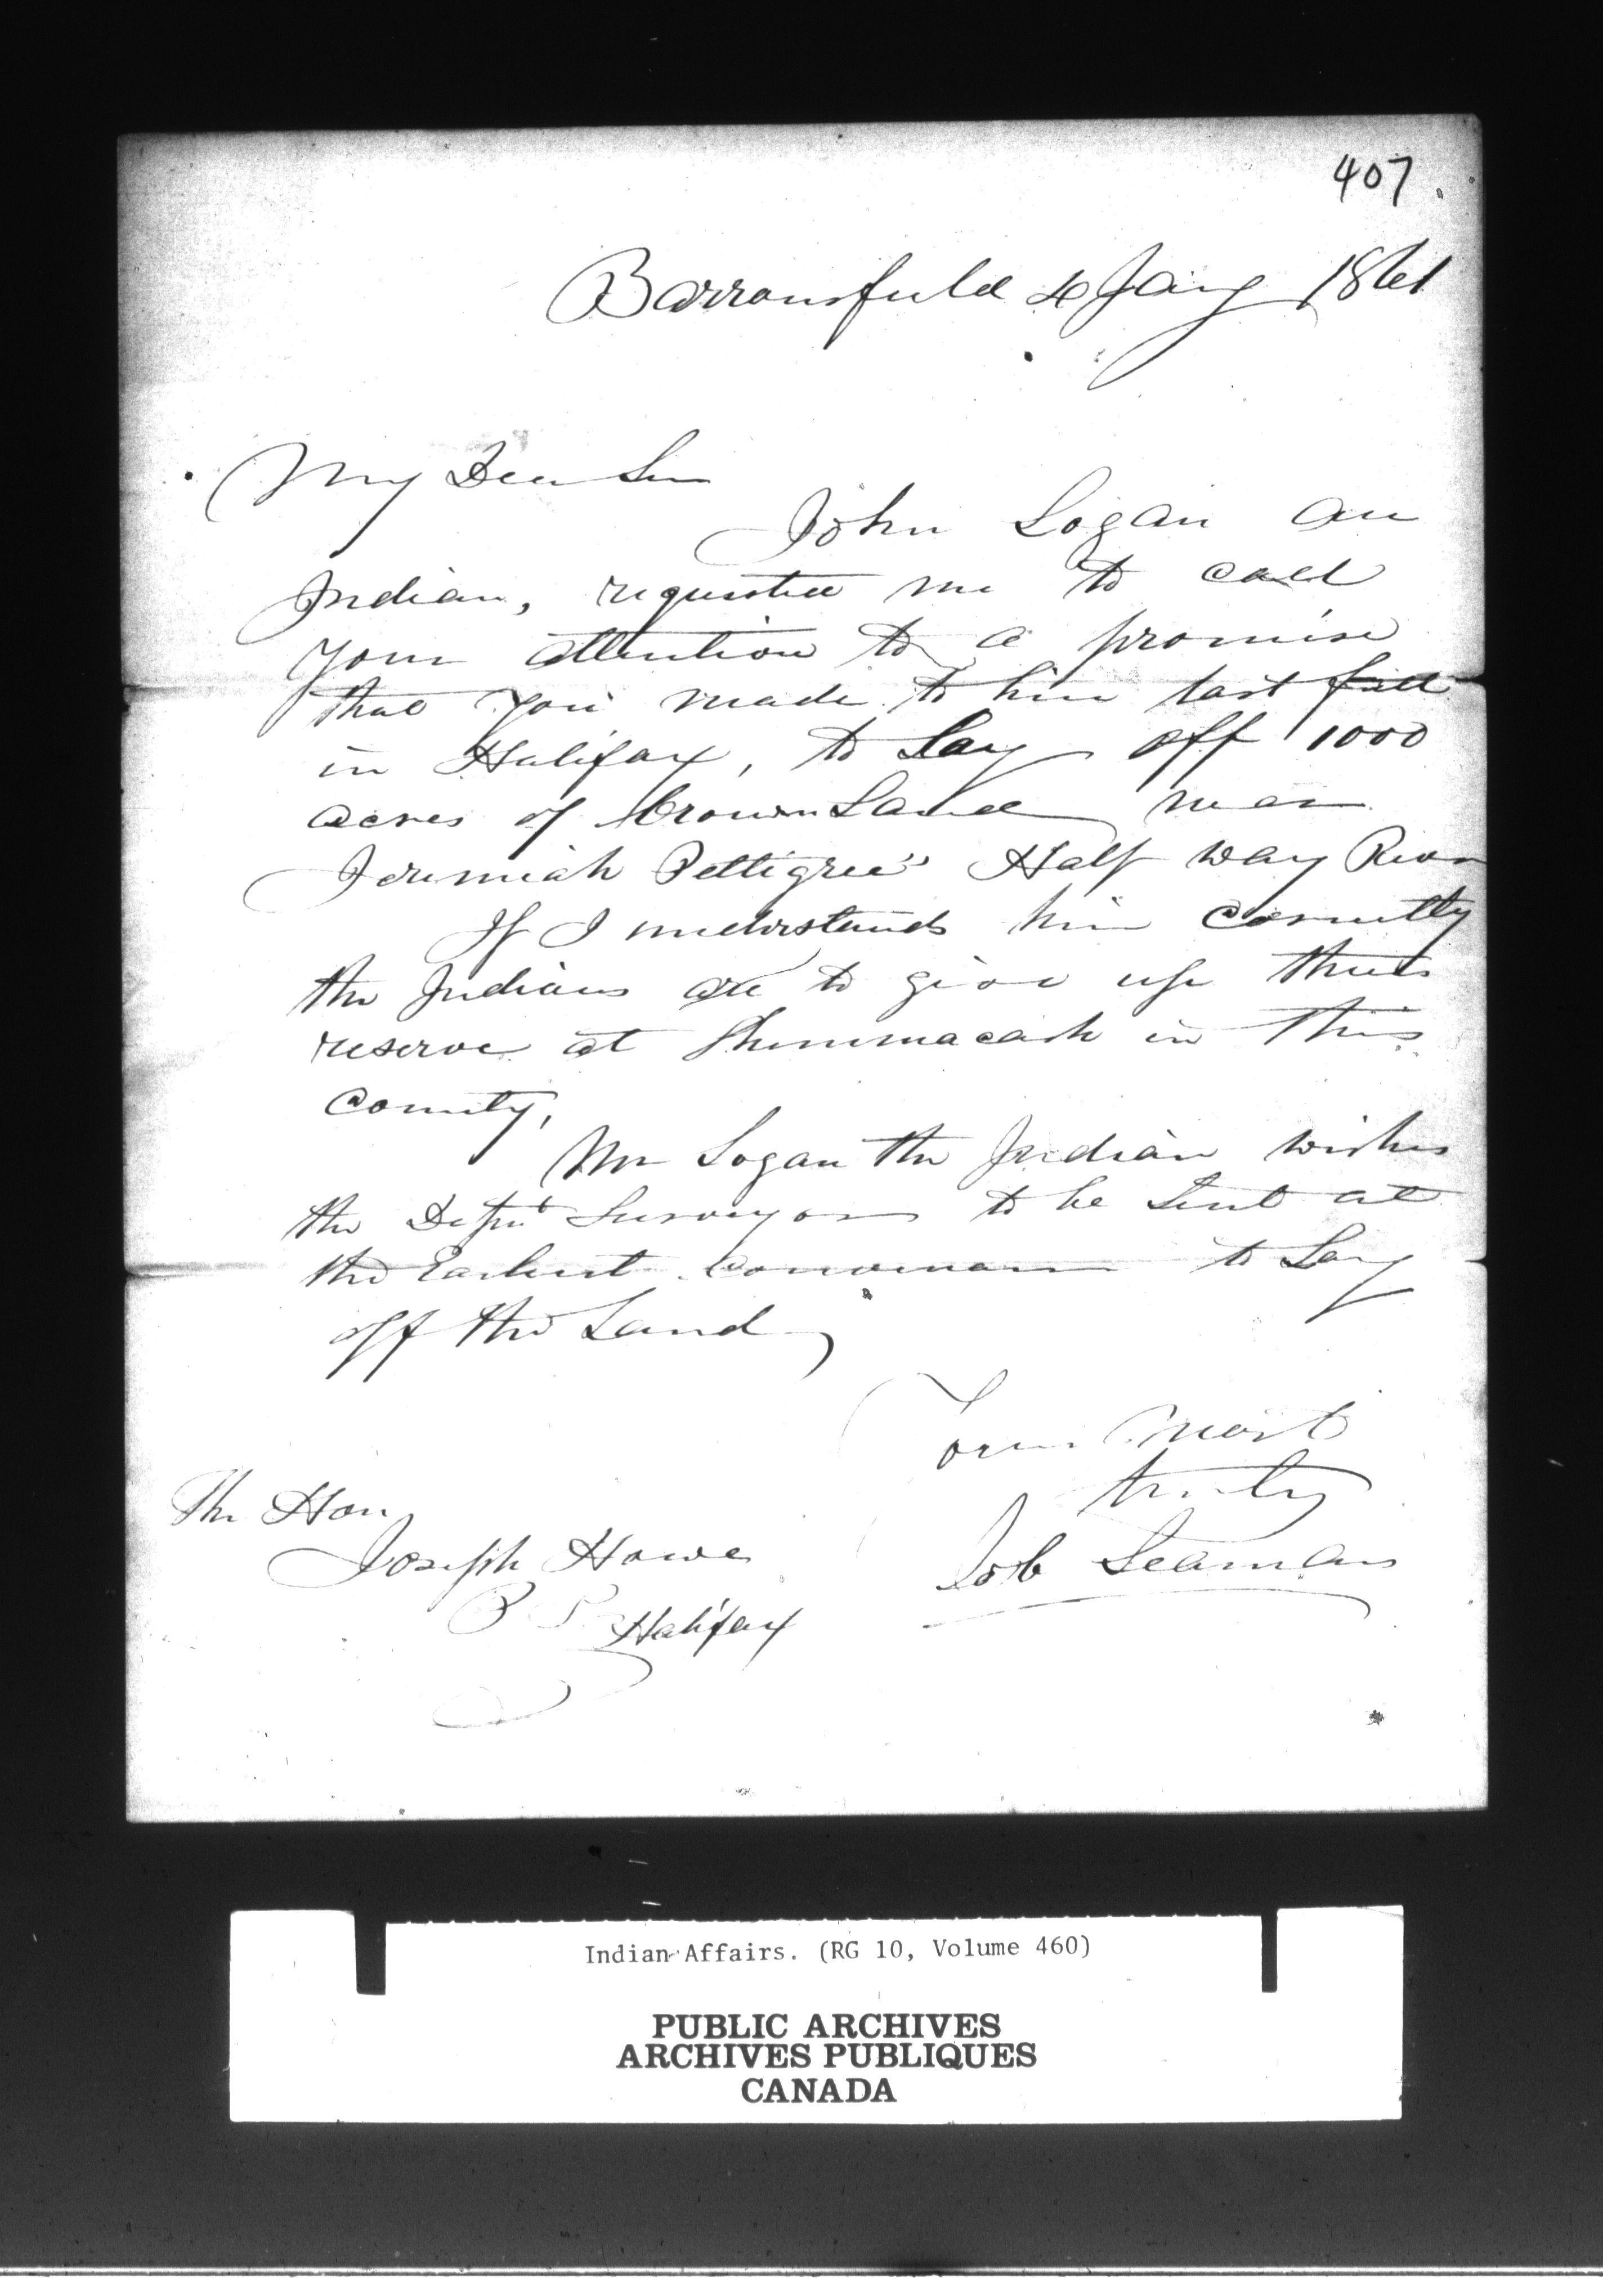 407
Barronsfield 4 Jany 1861
My Dear Sir
John Logan an
Indian, requested me to call
your attention to a promise
that you made to him last fall
in Halifax, to Lay off 1000
acres of Crown Land near
Jeremiah Pettigree's Half Way River
If I understands him correctly
the Indians are to give up their
reserve at Shinimacash in this
County,
Mr Logan the Indian wishes
the Deput Surveyor to be Sent at
the Earliest convenience to Lay
off the Land,
Yours Most
truly
Job Seamans
The Hon
Joseph Howe
P S Halifax
Indian Affairs. (RG 10, Volume 460)
PUBLIC ARCHIVES
ARCHIVES PUBLIQUES
CANADA